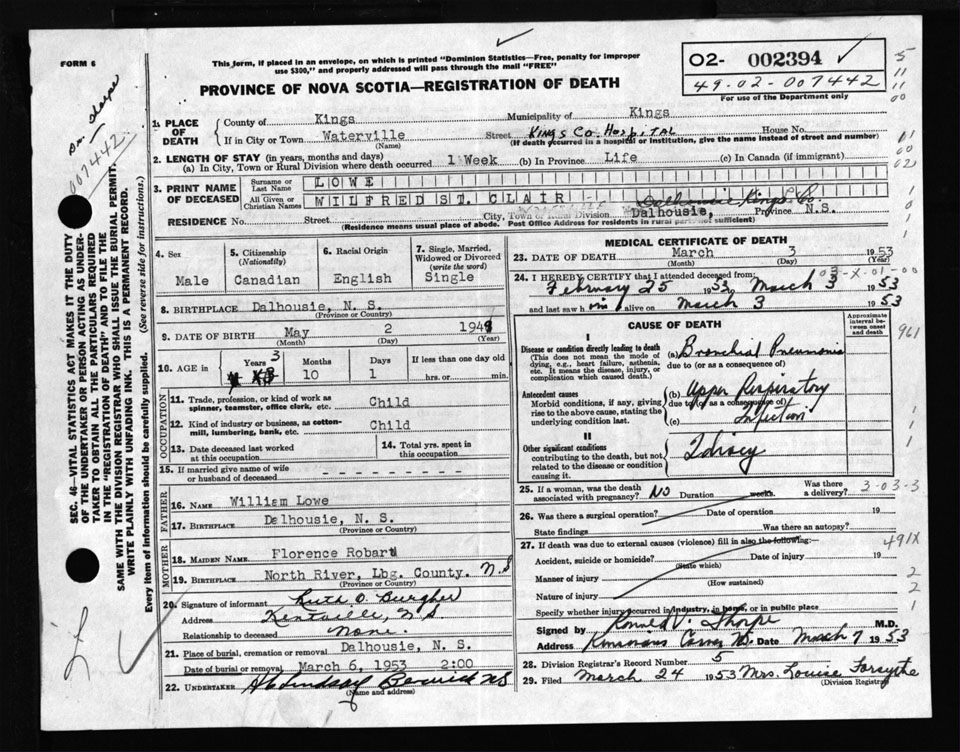 FORM 6
This form, if placed in an envelope, on which is printed "Dominion Statistics—Free, penalty for improper
use $300," and properly addressed will pass through the mail "FREE"
O2- 002394
49-02-007442
For use of the Department only
PROVINCE OF NOVA SCOTIA—REGISTRATION OF DEATH
Dr. Thorpe
007442
SEC. 46—VITAL STATISTICS ACT MAKES IT THE DUTY
OF THE UNDERTAKER OR PERSON ACTING AS UNDER-
TAKER TO OBTAIN ALL THE PARTICULARS REQUIRED
IN THE "REGISTRATION OF DEATH" AND TO FILE THE
SAME WITH THE DIVISION REGISTRAR WHO SHALL ISSUE THE BURIAL PERMIT.
WRITE PLAINLY WITH UNFADING INK. THIS IS A PERMANENT RECORD.
Every item of information should be carefully supplied. (See reverse side for instructions.)
1. PLACE OF DEATH
County of Kings Municipality of Kings
If in City or Town Waterville Street Kings Co. Hospital House No.
(Name) (If death occurred in a hospital or institution, give the name instead of street and number)
2. LENGTH OF STAY (in years, months and days)
(a) In City, Town or Rural Division where death occurred 1 Week (b) In Province Life (c) In Canada (if immigrant)
3. PRINT NAME OF DECEASED
Surname or Last Name LOWE
All Given or Christian Names WILFRED ST. CLAIR
Dalhousie Kings Co.
RESIDENCE No. Street City, Town or Rural Division Dalhousie, Province N.S.
(Residence means usual place of abode. Post Office Address for residents in rural parts not sufficient)
4. Sex
Male
5. Citizenship
(Nationality)
Canadian
6. Racial Origin
English
7. Single, Married,
Widowed or Divorced
(write the word)
Single
8. BIRTHPLACE Dalhousie, N. S.
(Province or Country)
9. DATE OF BIRTH May 2 1949
(Month) (Day) (Year)
10. AGE in Years 3 Months 10 Days 1 If less than one day old
hrs. or min.
OCCUPATION
11. Trade, profession, or kind of work as
spinner, teamster, office clerk, etc. Child
12. Kind of industry or business, as cotton-
mill, lumbering, bank, etc. Child
13. Date deceased last worked
at this occupation
14. Total yrs. spent in
this occupation
15. If married give name of wife
or husband of deceased
FATHER
16. NAME William Lowe
17. BIRTHPLACE Dalhousie, N. S.
(Province or Country)
MOTHER
18. MAIDEN NAME Florence Robart
19. BIRTHPLACE North River, Lbg. County. N.S
(Province or Country)
20. Signature of informant Ruth O. Burgher
Address Kentville, N.S.
Relationship to deceased None.
21. Place of burial, cremation or removal Dalhousie, N. S.
Date of burial or removal March 6, 1953 2:00
22. UNDERTAKER Lindsay Berwick NS
(Name and address)
MEDICAL CERTIFICATE OF DEATH
23. DATE OF DEATH March 3 1953
(Month) (Day) (Year)
03-X-01-00
24. I HEREBY CERTIFY that I attended deceased from:
February 25 1953 to March 3 1953
and last saw him alive on March 3 1953
CAUSE OF DEATH
Approximate
interval be-
tween onset
and death
I
Disease or condition directly leading to death
(This does not mean the mode of
dying, e.g., heart failure, asthenia,
etc. It means the disease, injury, or
complication which caused death.)
(a) Bronchial Pneumonia
due to (or as a consequence of)
Antecedent causes
Morbid conditions, if any, giving
rise to the above cause, stating the
underlying condition last.
(b) Upper Respiratory
due to (or as a consequence of)
(c) Infection
II
Other significant conditions
contributing to the death, but not
related to the disease or condition
causing it.
25. If a woman, was the death
associated with pregnancy? No Duration weeks. Was there
a delivery? 3-03-3
26. Was there a surgical operation? Date of operation 19
State findings Was there an autopsy?
27. If death was due to external causes (violence) fill in also the following:
491X
Accident, suicide or homicide? Date of injury 19
(State which)
Manner of injury
(How sustained)
Nature of injury
Specify whether injury occurred in industry, in home, or in public place
Signed by Ronald V. Thorpe M.D.
Address Date March 7 1953
28. Division Registrar's Record Number 5
29. Filed March 24 1953 Mrs. Louise Forsythe
(Division Registrar)
961